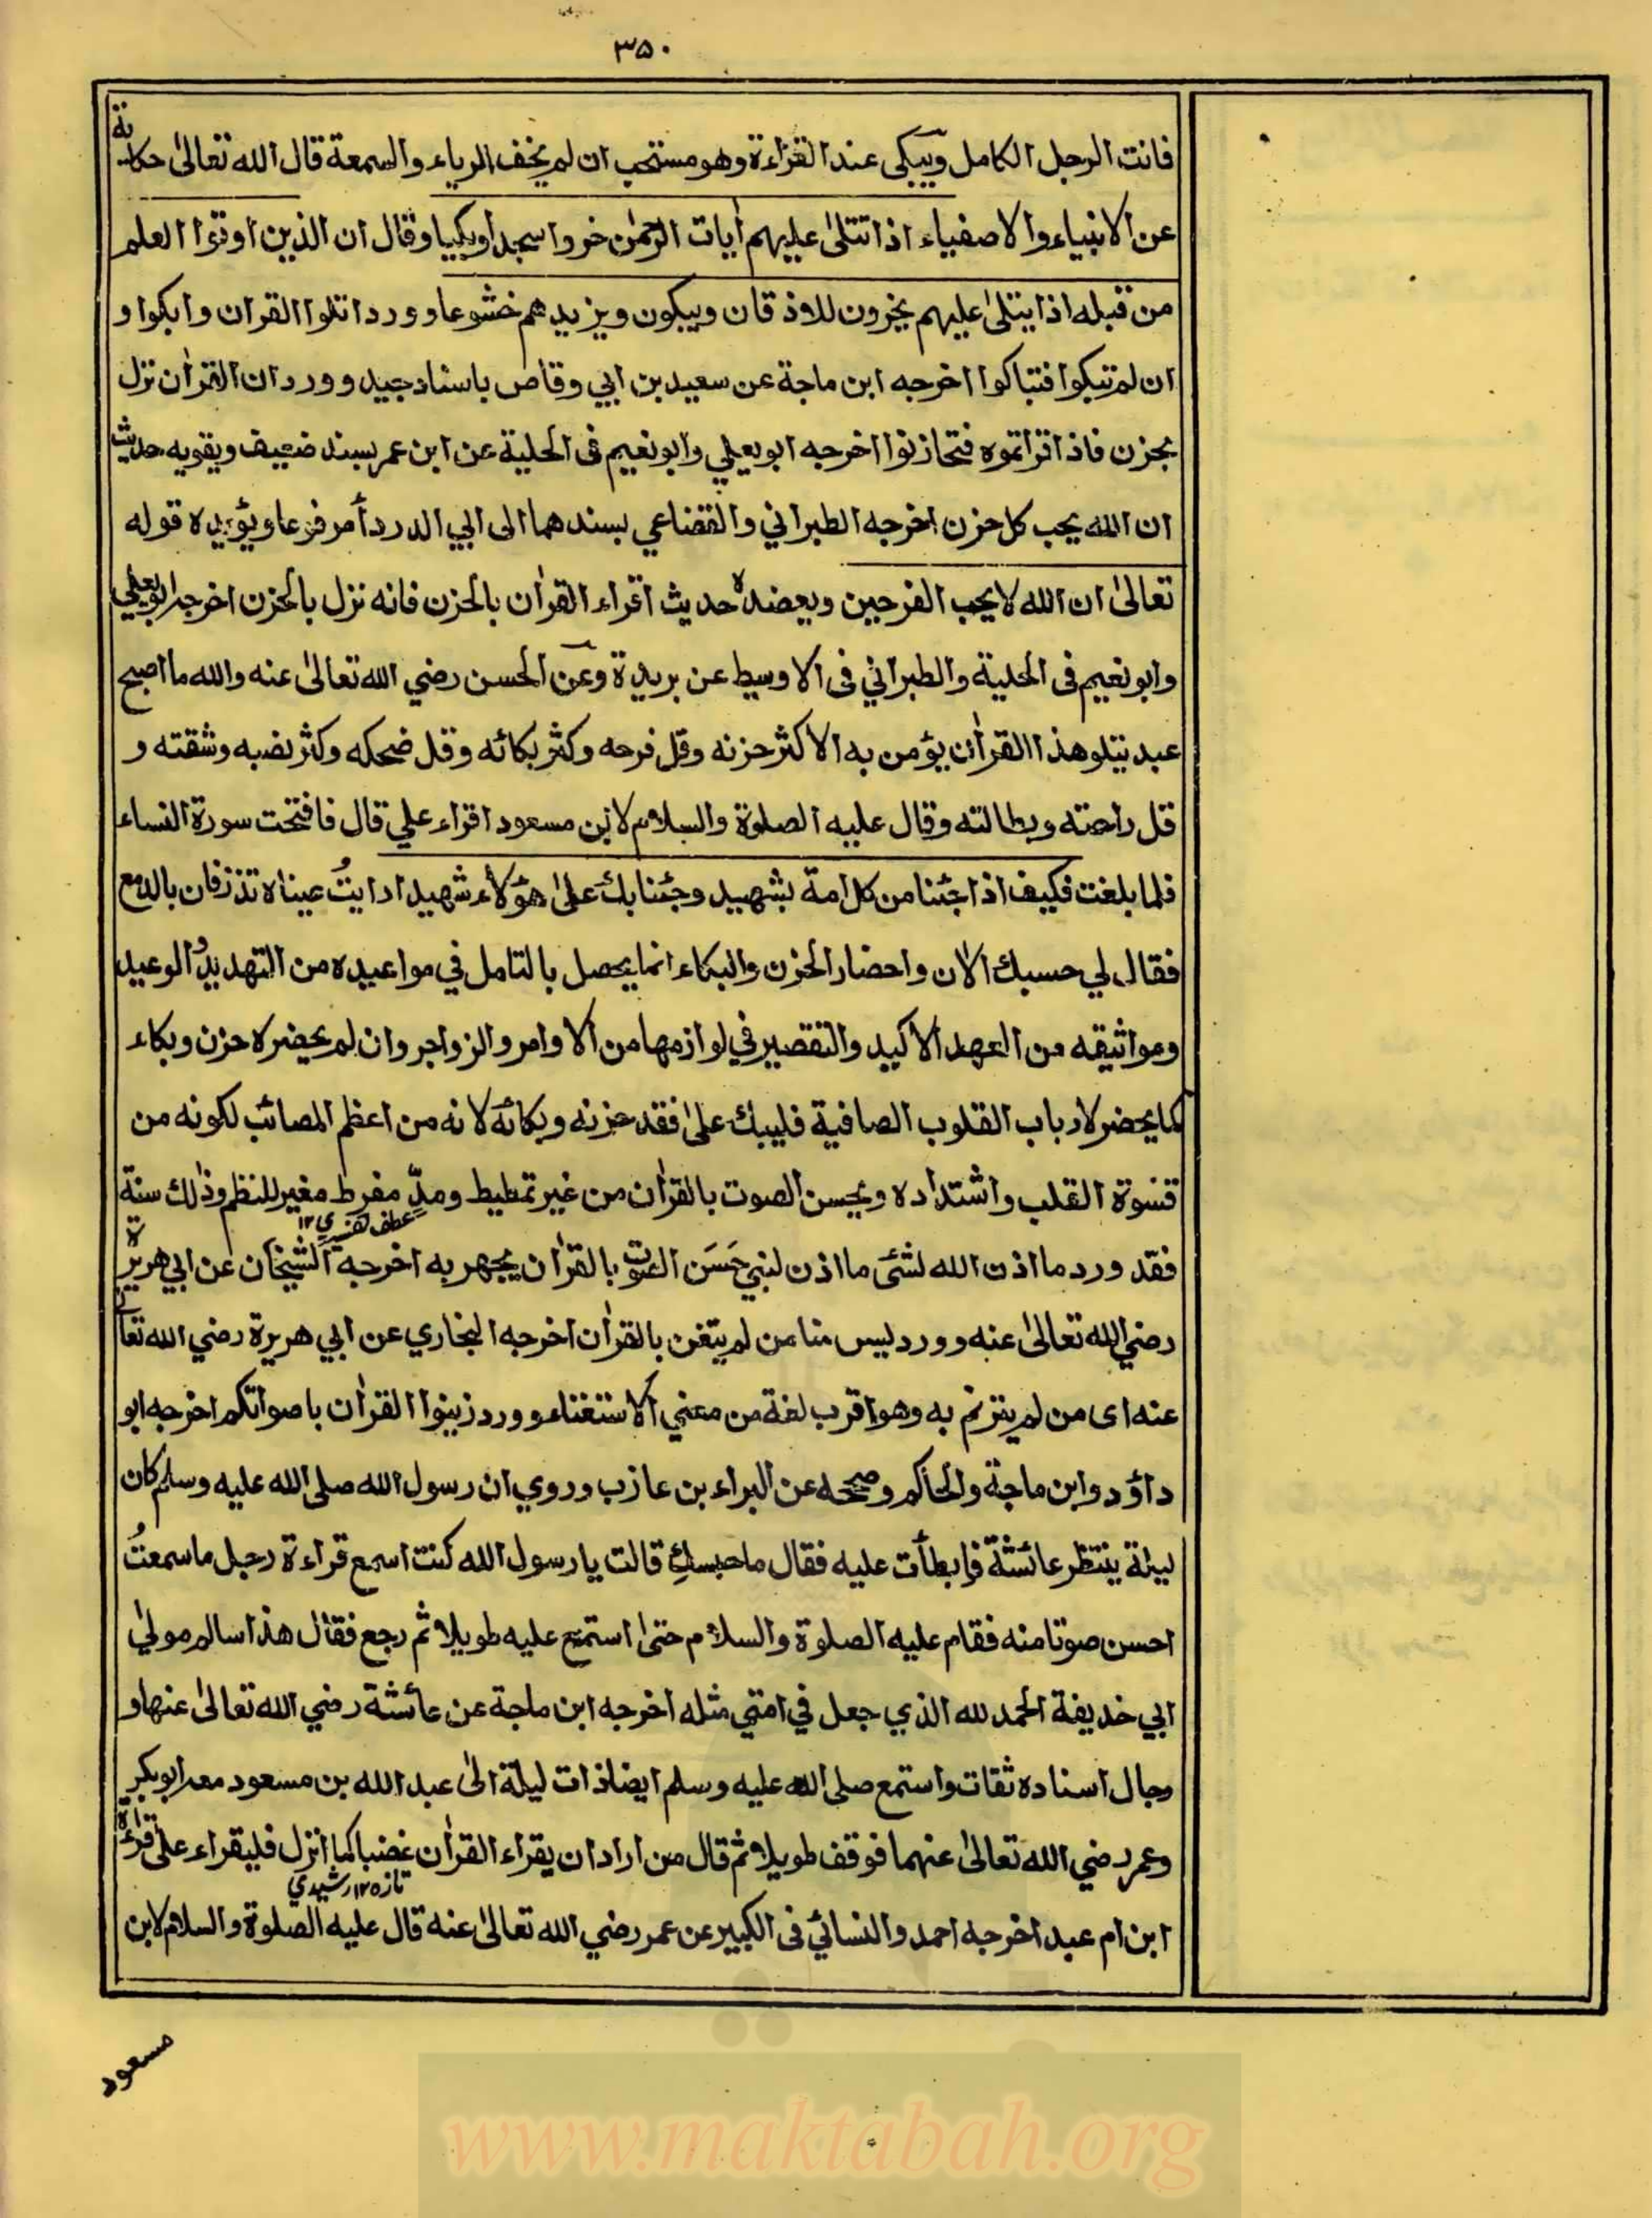 ٣٥٠
فانت الرجل الكامل ويبكى عند القراءة وهو مستحب ان لم يخف الرياء والسمعة قال الله تعالىٰ حكاية
عن الانبياء والاصفياء اذا تتلىٰ عليهم اٰيات الرحمٰن خروا سجدا وبكيا وقال ان الذين اوتوا العلم
من قبله اذا يتلىٰ عليهم يخرون للاذقان ويبكون ويزيدهم خشوعا وورد اتلوا القران وابكوا و
ان لم تبكوا فتباكوا اخرجه ابن ماجة عن سعيد بن ابي وقاص باسناد جيد وورد ان القراٰن نزل
بحزن فاذا قراتموه فتحازنوا اخرجه ابو يعلي وابو نعيم فى الحلية عن ابن عمر بسند ضعيف ويقويه حديث
ان الله يحب كل حزن اخرجه الطبراني والقضاعي بسندهما الى ابي الدردأ مرفوعا ويؤيده قوله
تعالىٰ ان الله لا يحب الفرحين ويعضده حديث اقراء القراٰن بالحزن فانه نزل بالحزن اخرجه ابو يعلي
وابو نعيم فى الحلية والطبراني فى الاوسيط عن بريدة وعن الحسن رضي الله تعالىٰ عنه والله ما اصبح
عبد يتلو هذا القراٰن يؤمن به الا كثر حزنه وقل فرحه وكثر بكائه وقل ضحكه وكثر نصبه وشقته و
قل راحته وبطالته وقال عليه الصلوة والسلام لابن مسعود اقراء علي قال فافتتحت سورة النساء
فلما بلغت فكيف اذا جئنا من كل امة بشهيد وجئنا بك علىٰ هؤلاء شهيدا رايتُ عيناه تذرفان بالدمع
فقال لي حسبك الان واحضار الحزن والبكاء انما يحصل بالتامل في مواعيده من التهديد والوعيد
ومواثيقه من العهد الاكيد والتقصير في لوازمها من الاوامر والزواجر وان لم يحضره حزن وبكاء
كما يحضر لارباب القلوب الصافية فليبك علىٰ فقد حزنه وبكائه لانه من اعظم المصائب لكونه من
قسوة القلب واشتداده ويحسن الصوت بالقراٰن من غير تمطيط ومدٍّ مفرط مغير للنظم وذٰلك سنة
فقد ورد ما اذن الله لشئ ما اذن لنبي حَسَن الصوت بالقراٰن يجهر به اخرجه الشيخان عن ابي هريرة
رضي الله تعالىٰ عنه وورد ليس منا من لم يتغن بالقراٰن اخرجه البخاري عن ابي هريرة رضي الله تعالىٰ
عنه اى من لم يترنم به وهو اقرب لغة من معني الاستغناء وورد زينوا القراٰن باصواتكم اخرجه ابو
داؤد وابن ماجة والحاكم وصححه عن البراء بن عازب وروي ان رسول الله صلى الله عليه وسلم كان
ليلة ينتظر عائشة فابطأت عليه فقال ما حبسكِ قالت يا رسول الله كنت اسمع قراءة رجل ما سمعتُ
احسن صوتا منه فقام عليه الصلوة والسلام حتىٰ استمع عليه طويلا ثم رجع فقال هذا سالم مولىٰ
ابي خذيفة الحمد لله الذي جعل في امتي مثله اخرجه ابن ماجة عن عائشة رضي الله تعالىٰ عنها و
رجال اسناده ثقات واستمع صلى الله عليه وسلم ايضا ذات ليلة الىٰ عبد الله بن مسعود معه ابو بكر
وعمر رضي الله تعالىٰ عنهما فوقف طويلا ثم قال من اراد ان يقراء القراٰن غضبا كما انزل فليقراء علىٰ قراءة
تازه ١٢ رشيدي
ابن ام عبد اخرجه احمد والنسائي فى الكبير عن عمر رضي الله تعالىٰ عنه قال عليه الصلوة والسلام لابن
مسعود
www.maktabah.org